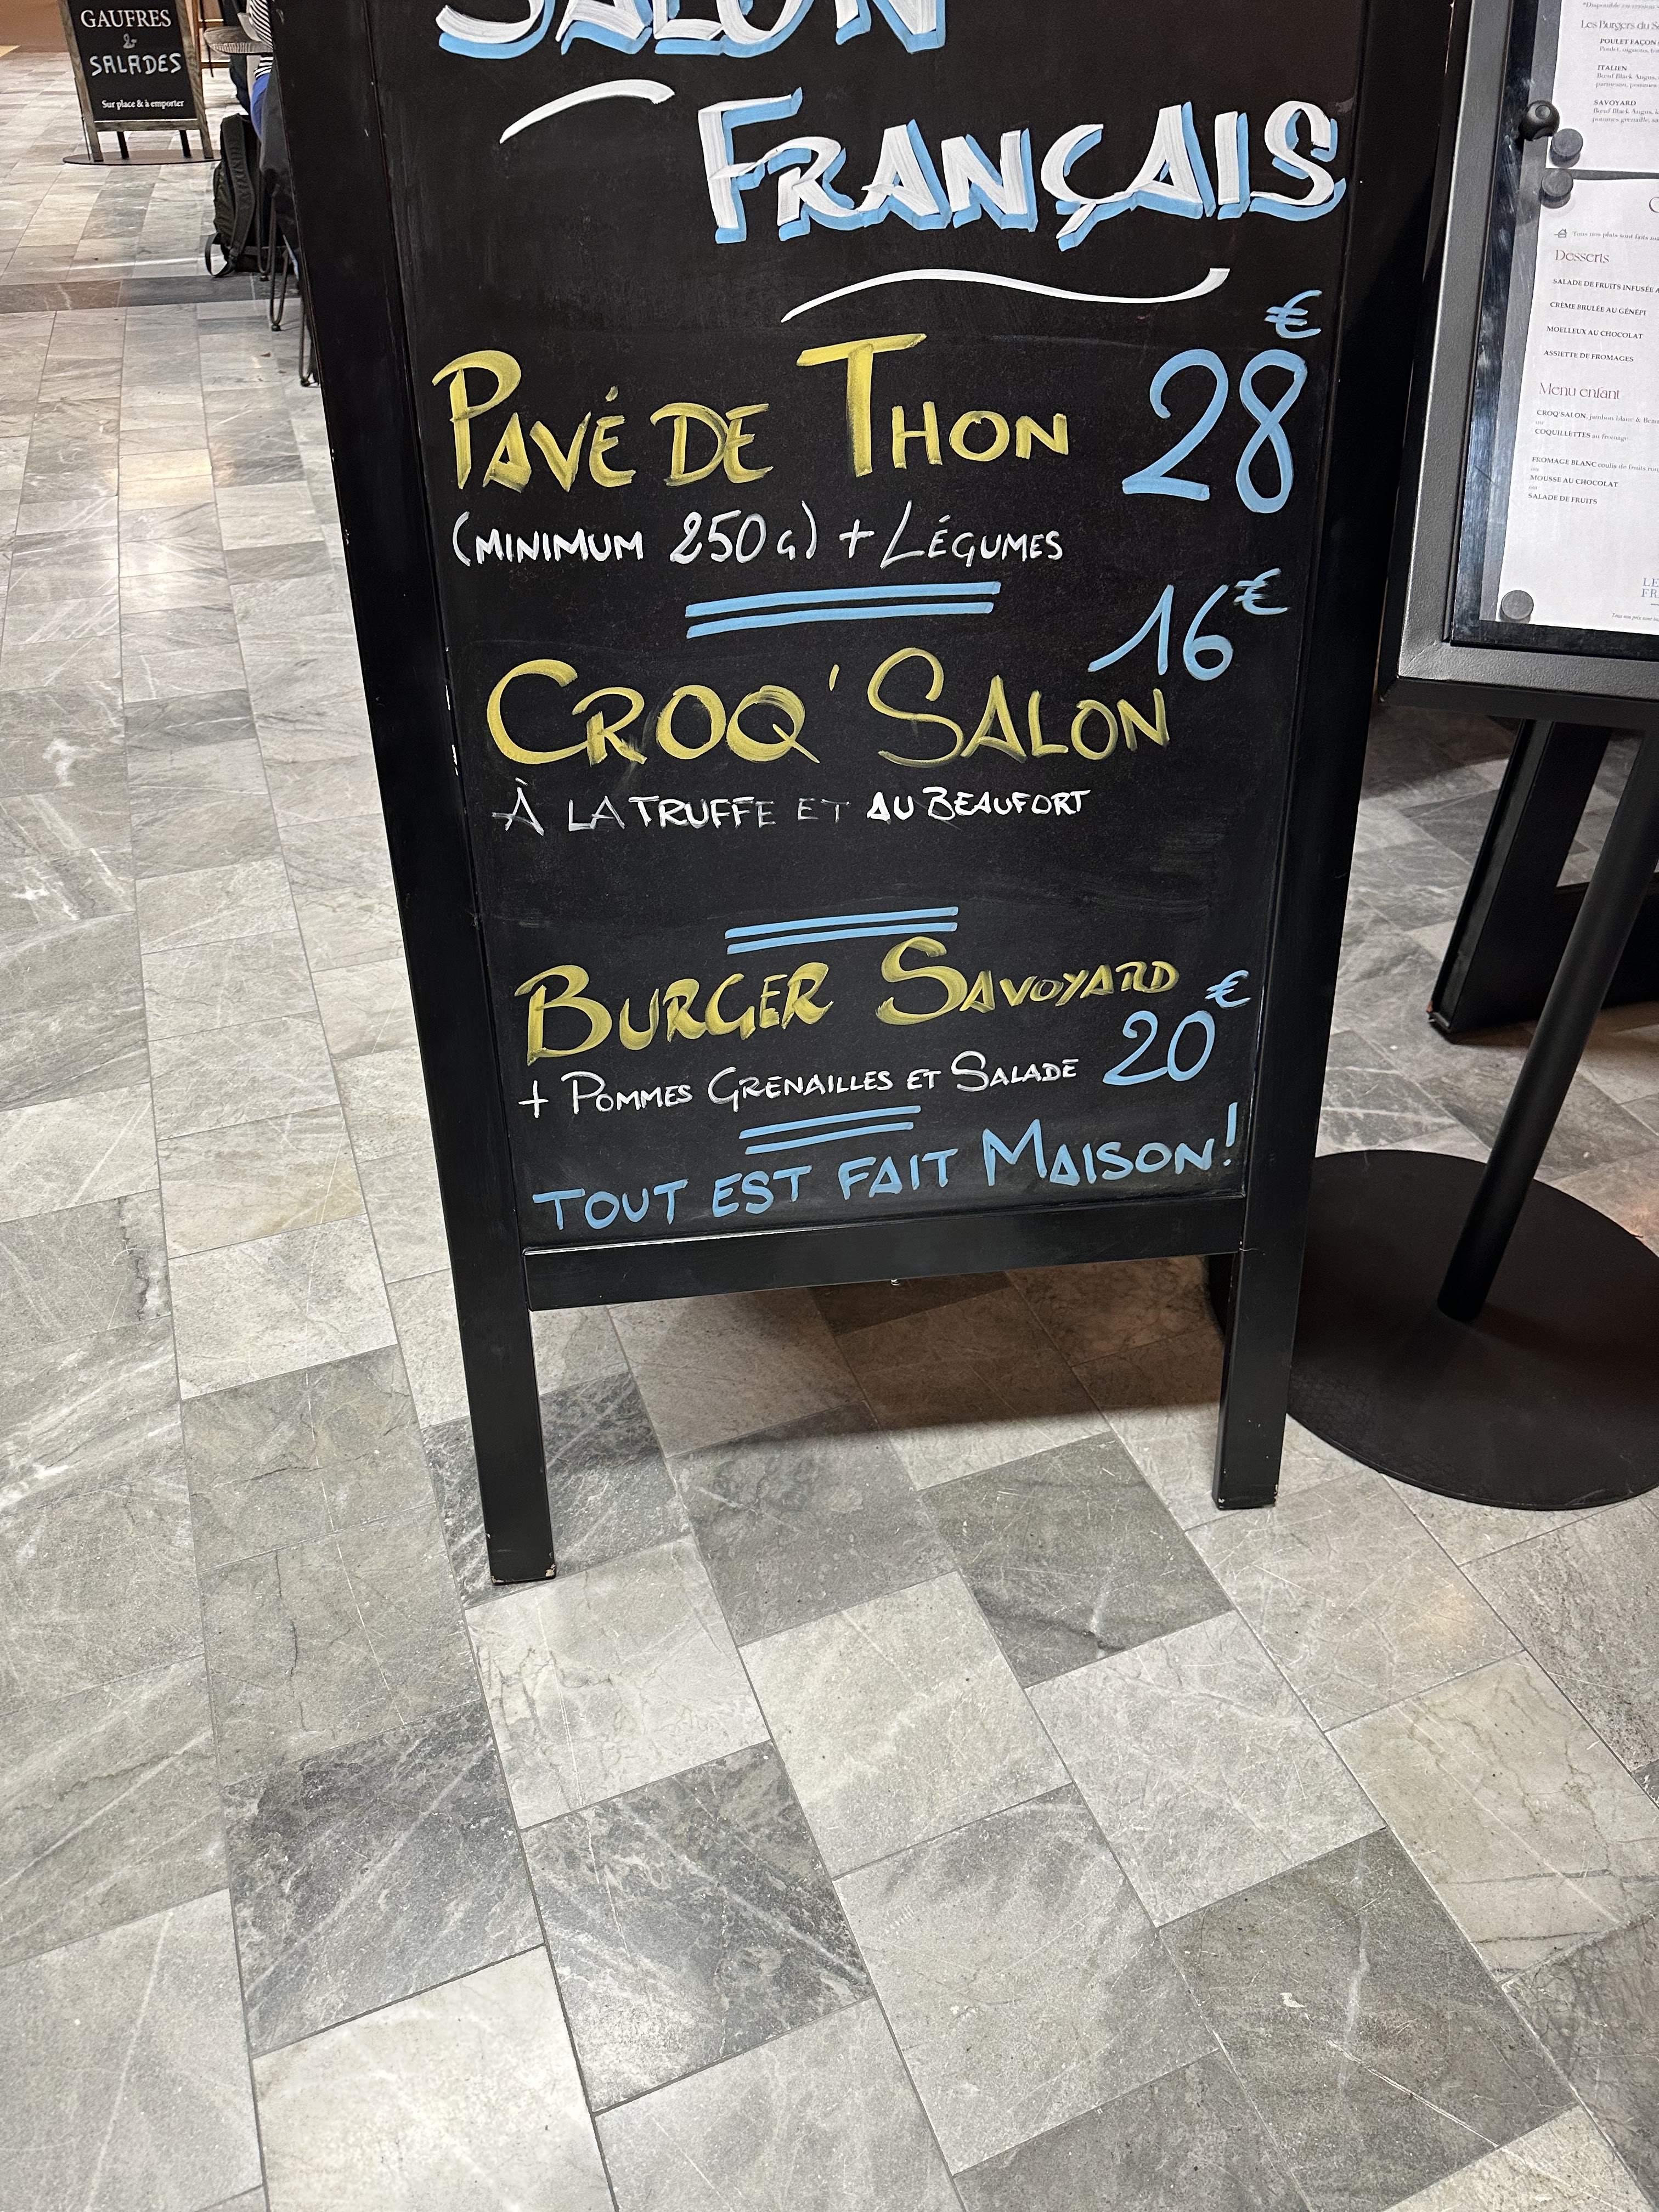 GAUFRES
&
SALADES
Sur place & à emporter
SALON
FRANÇAIS
PAVÉ DE THON 28€
(MINIMUM 250G) + LÉGUMES
CROQ'SALON 16€
À LA TRUFFE ET AU BEAUFORT
BURGER SAVOYARD
+ POMMES GRENAILLES ET SALADE 20€
TOUT EST FAIT MAISON!
Les Burgers du
POULET FAÇON
ITALIEN
Bœuf Black Angus,
SAVOYARD
Bœuf Black Angus,
pommes grenaille,
Tous nos plats sont faits
Desserts
SALADE DE FRUITS INFUSÉE
CRÈME BRULÉE AU GÉNÉPI
MOELLEUX AU CHOCOLAT
ASSIETTE DE FROMAGES
Menu enfant
CROQ'SALON, jambon blanc &
ou
COQUILLETTES au fromage
FROMAGE BLANC coulis de fruits
ou
MOUSSE AU CHOCOLAT
ou
SALADE DE FRUITS